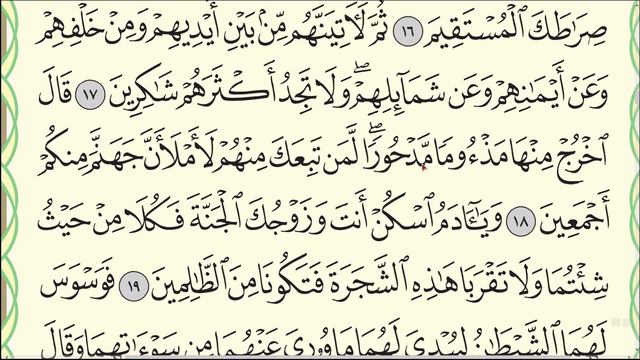 صِرَٰطَكَ ٱلْمُسْتَقِيمَ ١٦ ثُمَّ لَءَاتِيَنَّهُم مِّنۢ بَيْنِ أَيْدِيهِمْ وَمِنْ خَلْفِهِمْ
وَعَنْ أَيْمَٰنِهِمْ وَعَن شَمَآئِلِهِمْ ۖ وَلَا تَجِدُ أَكْثَرَهُمْ شَٰكِرِينَ ١٧ قَالَ
ٱخْرُجْ مِنْهَا مَذْءُومًا مَّدْحُورًا ۖ لَّمَن تَبِعَكَ مِنْهُمْ لَأَمْلَأَنَّ جَهَنَّمَ مِنكُمْ
أَجْمَعِينَ ١٨ وَيَٰٓـَٔادَمُ ٱسْكُنْ أَنتَ وَزَوْجُكَ ٱلْجَنَّةَ فَكُلَا مِنْ حَيْثُ
شِئْتُمَا وَلَا تَقْرَبَا هَٰذِهِ ٱلشَّجَرَةَ فَتَكُونَا مِنَ ٱلظَّٰلِمِينَ ١٩ فَوَسْوَسَ
لَهُمَا ٱلشَّيْطَٰنُ لِيُبْدِىَ لَهُمَا مَا وُۥرِىَ عَنْهُمَا مِن سَوْءَٰتِهِمَا وَقَالَ